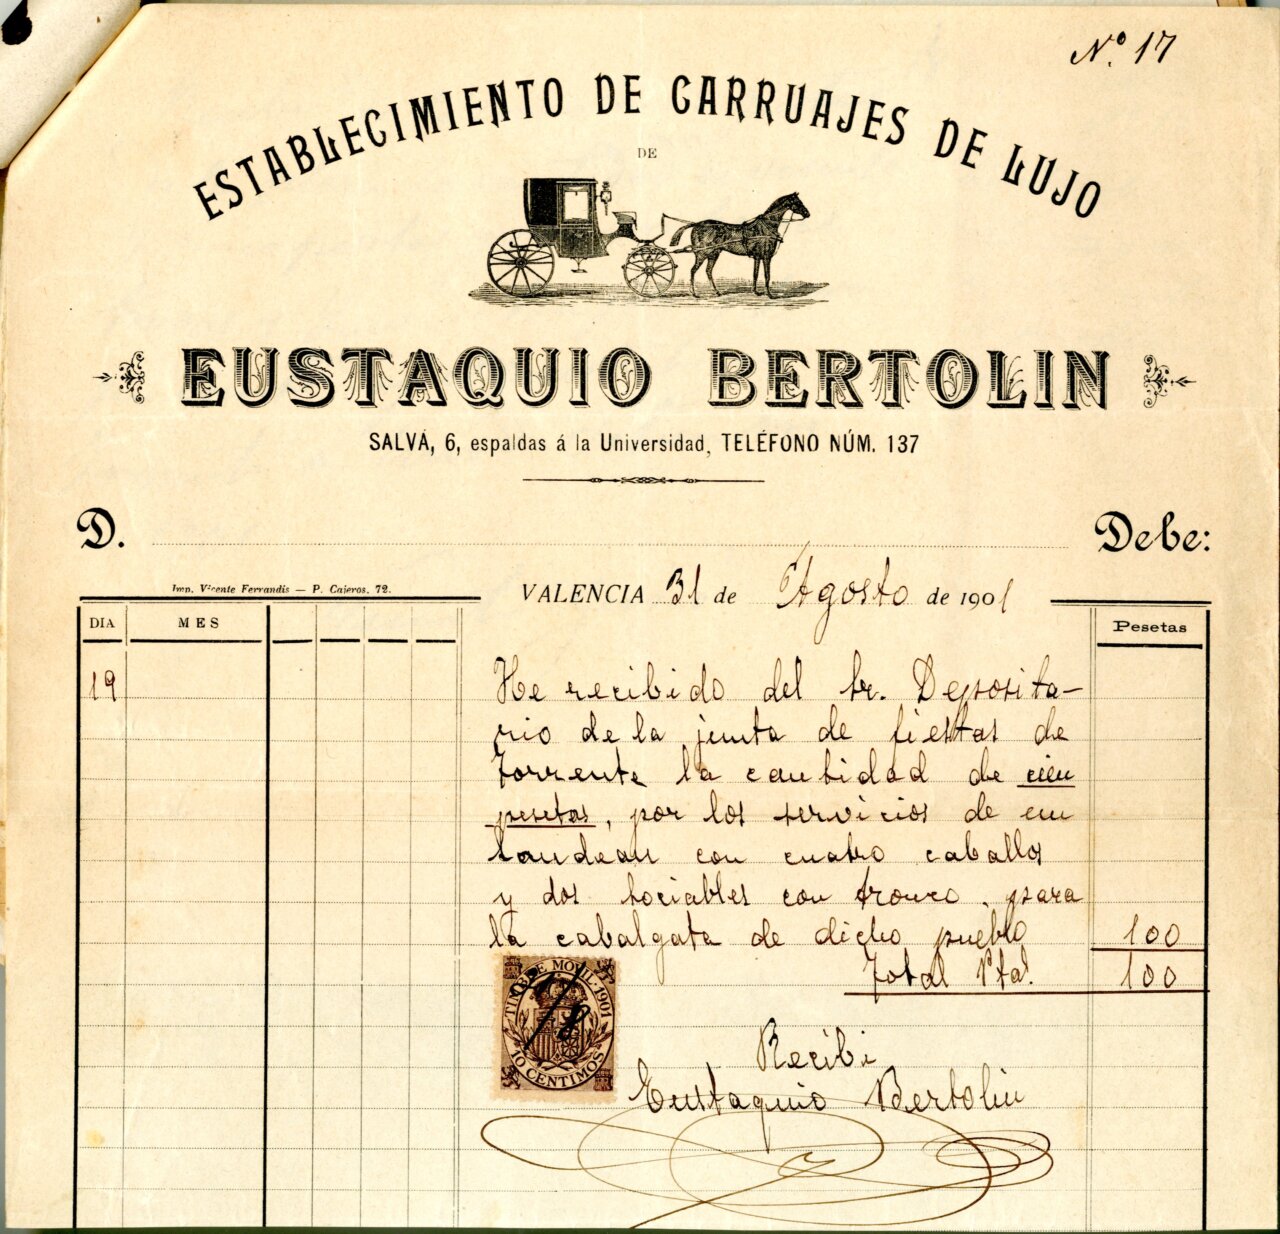 Nº 17
ESTABLECIMIENTO DE CARRUAJES DE LUJO
DE
EUSTAQUIO BERTOLIN
SALVÁ, 6, espaldas á la Universidad, TELÉFONO NÚM. 137
D. Debe:
Imp. Vicente Ferrandis — P. Cajeros. 72.
VALENCIA 31 de Agosto de 1901
DIA MES Pesetas
19 He recibido del Sr. Deposita-
rio de la junta de fiestas de
Torrente la cantidad de cien
pesetas, por los servicios de un
landeau con cuatro caballos
y dos sociables con tronco, para
la cabalgata de dicho pueblo 100
Total Ptas. 100
TIMBRE MOVIL·1901
10 CENTIMOS
Recibi
Eustaquio Bertolin